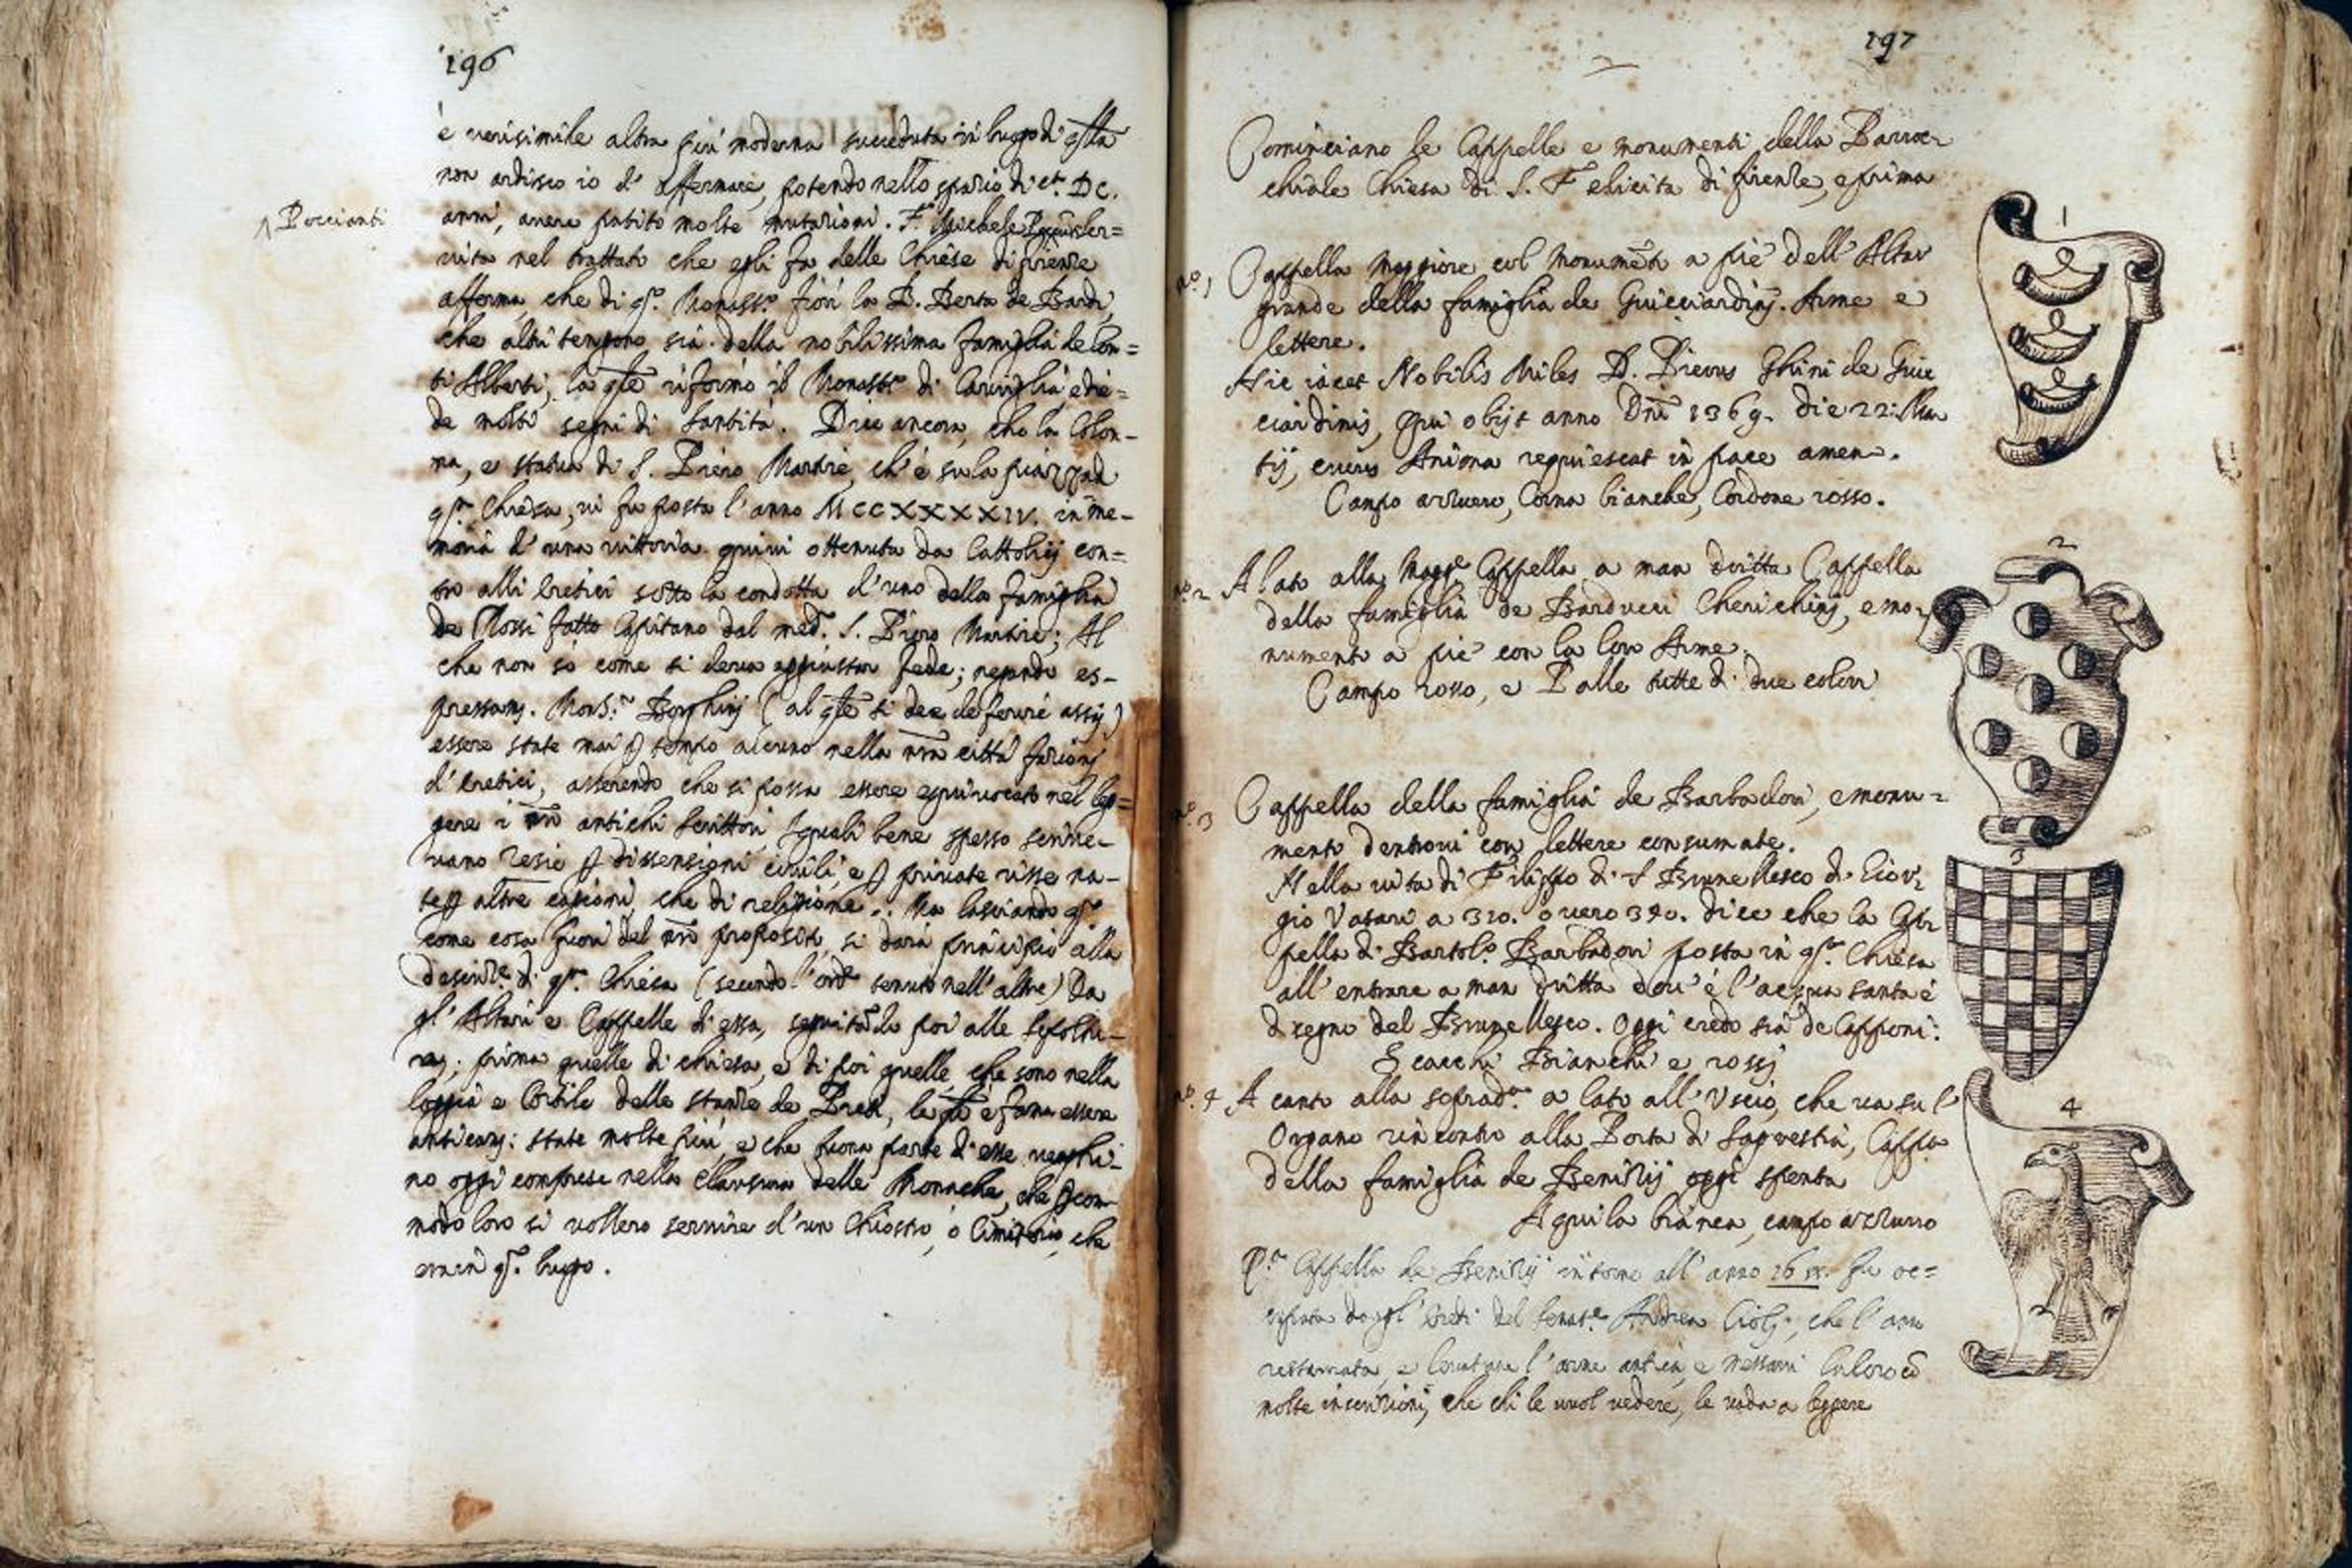 196
è verisimile altra più moderna succeduta in luogo di qlla
non ardisco io d' affermare, potendo nello spazio di ct. DC.
anni, avere patito molte mutazioni. F. Michele ser=
Poccianti
vita nel trattato che egli fa delle Chiese di firenze
afferma, che di qto. Monasto. fiorì la B. Berta de Bardi,
che altri tengono sia della nobilissima famiglia de Con=
ti Alberti, la qle riformò il Monastro di Cavriglia, e die=
de molti segni di santità. Dice ancora, che la Colon-
na, e statua di S. Piero Martire, ch' è su la piazza d
qta. Chiesa, vi fu posta l'anno MCCXXXXIV. in me-
moria d' una vittoria quivi ottenuta da Cattolici con=
tro alli eretici sotto la condotta d' uno della famiglia
de Rossi fatto Capitano dal med. S. Piero Martire; Al
che non so come si deva aggiustar fede; negando es-
pressam. Monsr. Borghinj (al qle si dee deferire assj)
essere state mai p tempo alcuno nella nra città fazionj
d' eretici, asserendo che si possa essere equivocato nel leg=
gere i nri antichi scrittori, i quali bene spesso scrive-
vano resie p dissensioni civili, e p private risse na-
te p altre cagioni, che di religione. Ma lasciando qto
come cosa fuori del nro proposito, si darà principio alla
descrize. di qta. Chiesa (secondo l'ordie tenuto nell' altre) Da
gl' Altari e Cappelle di essa, seguitado poi alle sepoltu-
re; prima quelle di chiesa, e di poi quelle, che sono nella
loggia e Cortile delle stanze de Preti, le qli è fama essere
anticam. state molte più, e che buona parte di esse venghi-
no oggi comprese nella Clausura delle Monache, che p com-
modo loro si vollero servire d' un Chiostro, ò Cimiterio, che
era in qto. luogo.
197
Cominciano le Cappelle e monumenti della Parroc-
chiale Chiesa di S. Felicita di firenze, e prima
no. 1 Cappella Maggiore col Monumēto a piè dell' Altar
grande della famiglia de Guicciardinj. Arme e
lettere.
Hic iacet Nobilis Miles D. Pierus Ghini de Guic
ciardinis, qui obijt anno Dni 1369. die 22. Mar
tij, cuius Anima requiescat in pace amen.
Campo azzurro, Corna bianche, Cordone rosso.
1
no. 2 A lato alla Magge Cappella a man dritta Cappella
della famiglia de Barducci Cherichinj, e mo-
numento a piè con la lor Arme.
Campo rosso, e Palle tutte di due colori
2
no. 3 Cappella della famiglia de Barbadori, e monu-
mento dentrovi con lettere consumate.
Nella vita di Filippo di S Brunellesco di Gior-
gio Vasari a 310. overo 390. dice che la Cap
pella di Bartolo. Barbadori posta in qta. Chiesa
all' entrare a man dritta dov' è l'acqua santa è
disegno del Brunellesco. Oggi credo sia de Capponi.
Scacchi Bianchi e rossj
3
no. 4 A canto alla sopradta. a lato all' Uscio, che va su l'
Organo rincontro alla Porta di Sagrestia, Cappa
della famiglia de Benizij oggi spenta
Aquila bianca, campo azzurro
4
Pta. Cappella de Benizij intorno all' anno 16 fu oc=
cupata dagl' eredi del Senatre. Andrea Ciolj, che l' an
restaurata, e levatane l' arme antica, e messavi la loro cō
molte inscrizioni, che chi le vuol vedere, le vada a leggere